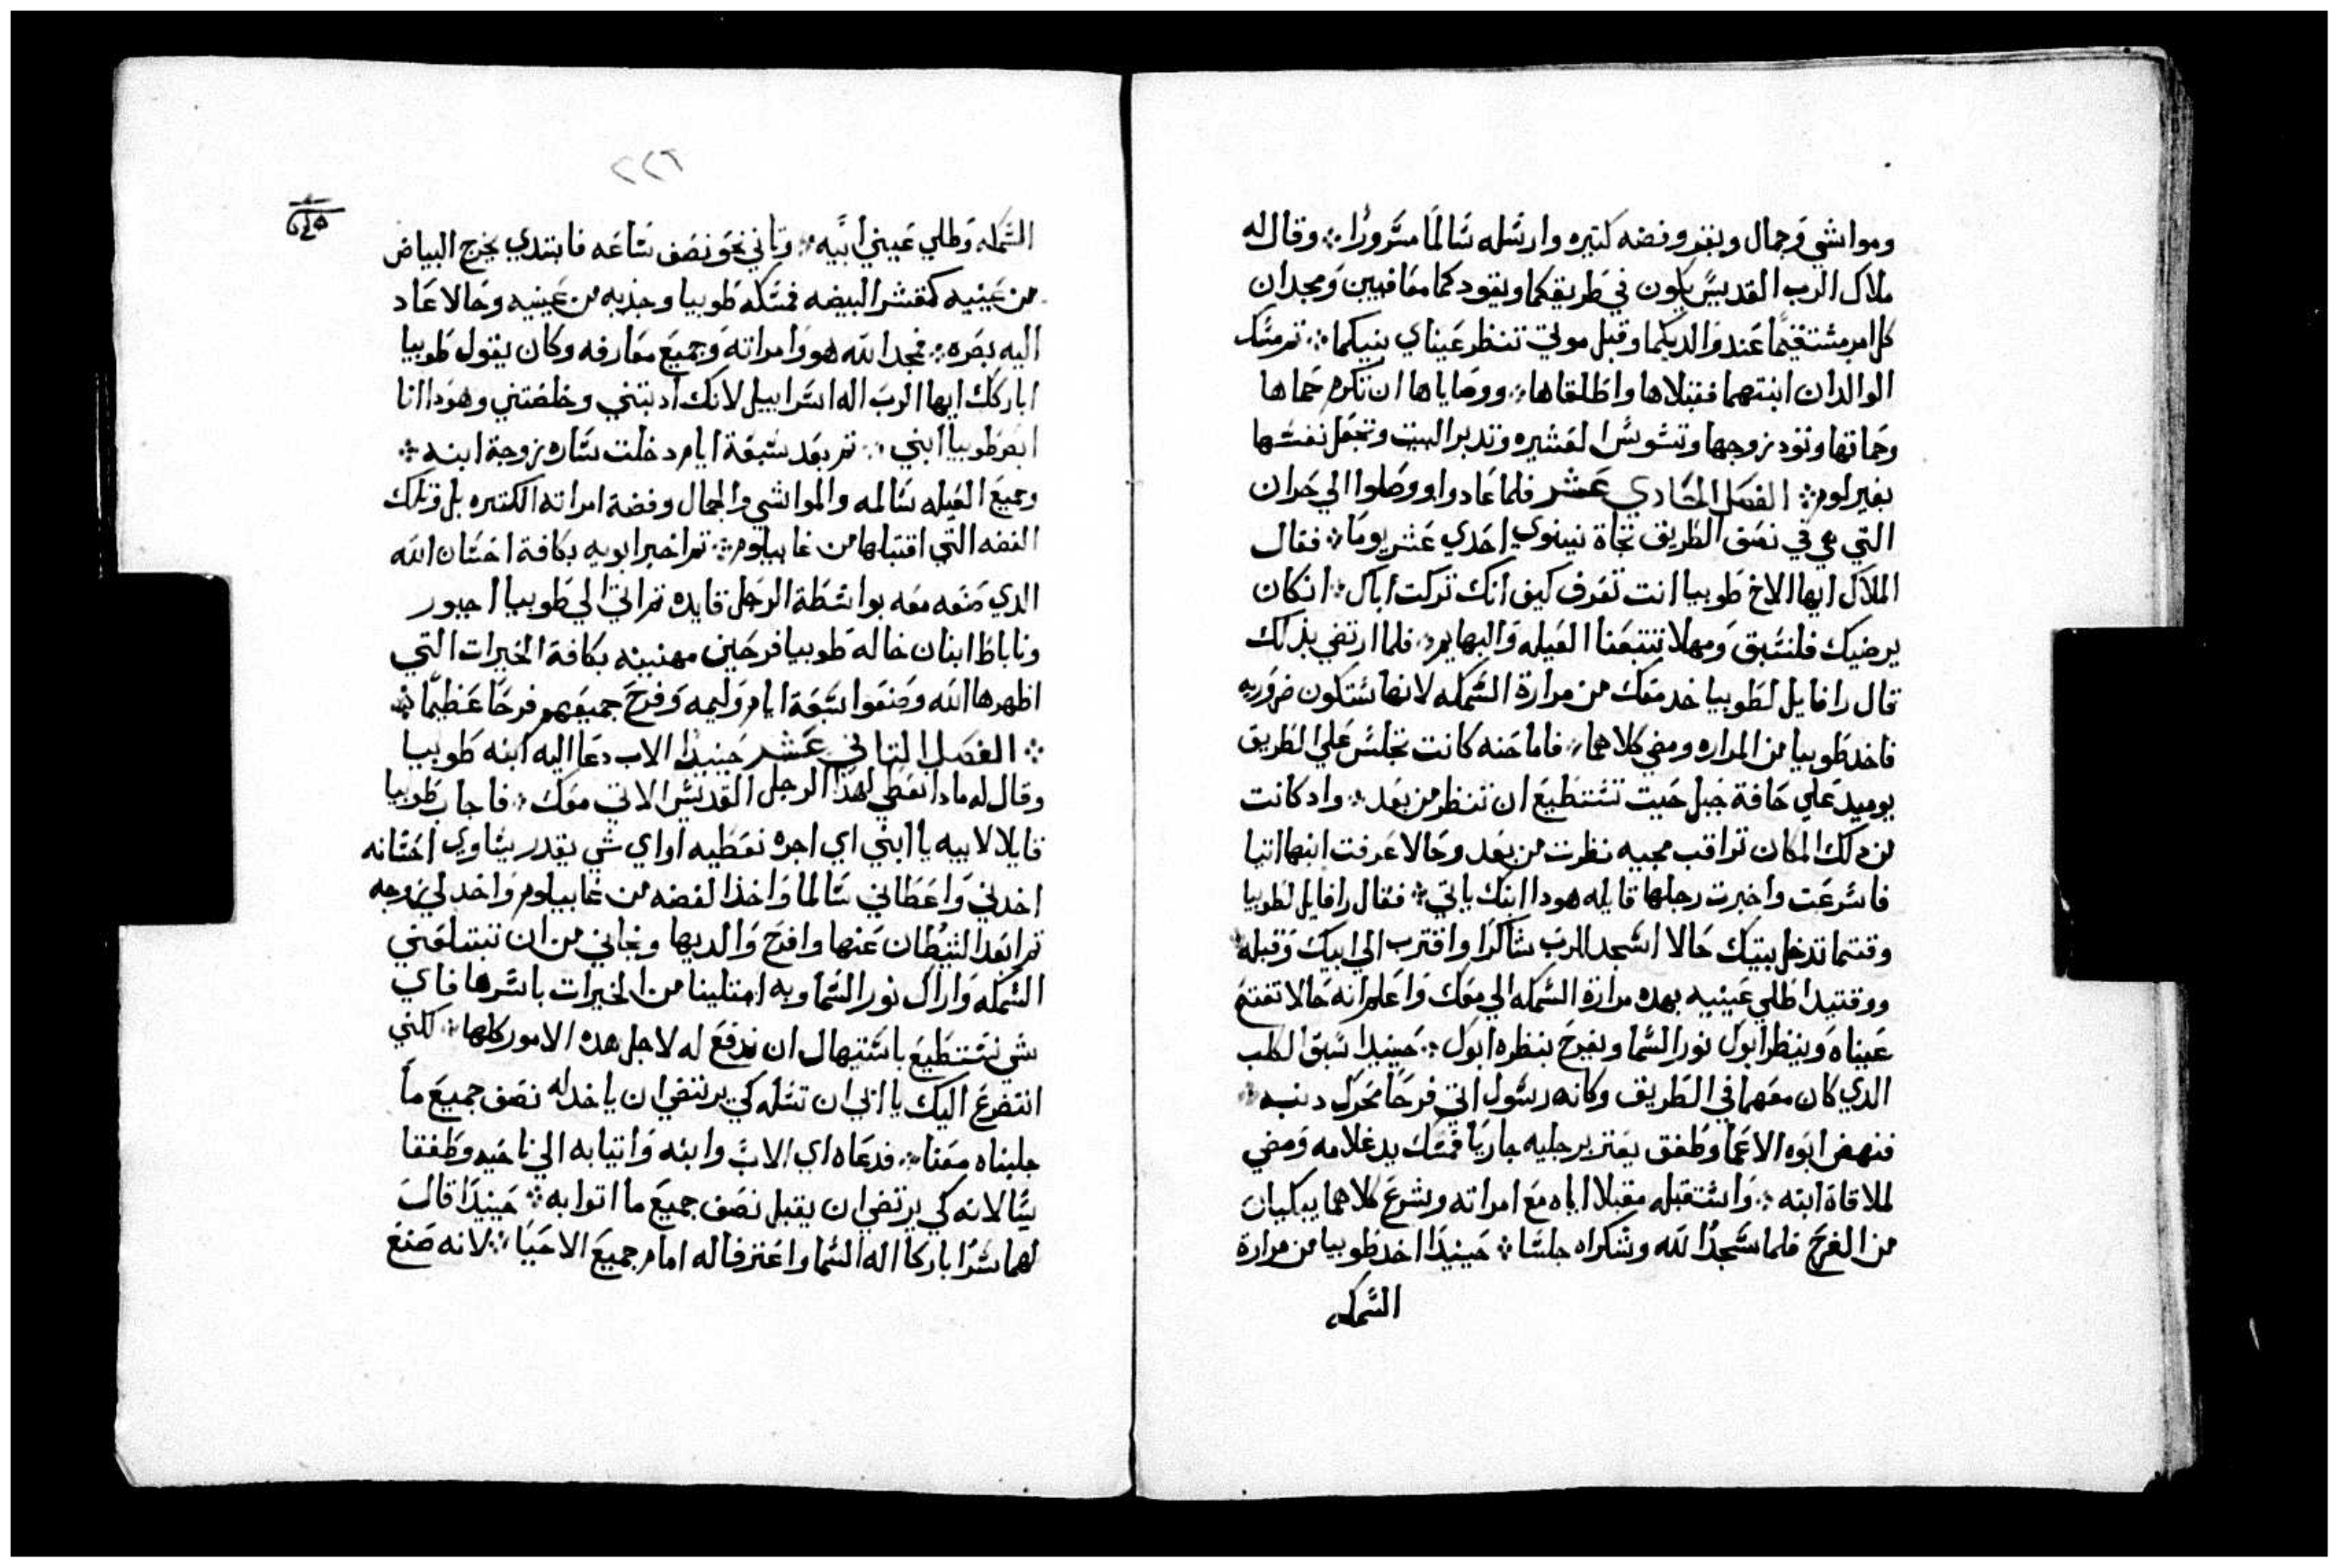 ومواشي وجمال وبقر وفضه كتيره وارسله سالمًا مسرورًا ∴ وقال له
ملاك الرب القديس يكون في طريقكما ويقودكما معافيين وتجدان
كل امر مستقيمًا عند والديكما وقبل موتي تنظر عيناي بنيكما ∴ تم مسك
الوالدان ابنتهما فقبلاها واطلقاها ∴ ووصاياها ان تكرم حماها
وحماتها وتود زوجها وتسوس العشيره وتدبر البيت وتجعل نفسها
بغير لوم ∴ الفصل الحادي عشر فلما عادوا ووصلوا الي حران
التي هي في نصف الطريق تجاة نينوي احدي عشر يومًا ∴ فقال
الملاك ايها الاخ طوبيا انت تعرف كيف انك تركت اباك ∴ ان كان
يرضيك فلنسبق ومهلا تتبعنا العيله والبهايم ∴ فلما ارتضي بذلك
قال رافايل لطوبيا خد معك من مرارة السمكه لانها ستكون ضروريه
فاخد طوبيا من المراره ومضي كلاهما ∴ فاما حنه كانت تجلس علي الطريق
يوميد علي حافة جبل حيت تستطيع ان تنظر من بعد ∴ واد كانت
من دلك المكان تراقب مجيه نظرت من بعد وحالا عرفت ابنها اتيا
فاسرعت واخبرت رجلها قايله هودا ابنك ياتي ∴ فقال رافايل لطوبيا
وقتما تدخل بيتك حالا اسجد للرب شاكرًا واقترب الي ابيك وقبله ∴
ووقتيدا طلي عينيه بهده مرارة السمكه الي معك واعلم انه حالا تفتتح
عيناه وينظر ابوك نور السما ويفرح بنظره ابوك ∴ حينيدا سبق الكلب
الدي كان معهما في الطريق وكانه رسول اتي فرحًا محرك دنبه ∴
فنهض ابوه الاعما وطفق يعتر برجليه جاريًا فمسك يد غلامه ومضي
لملاقاة ابنه ∴ واستقبله مقبلا اياه مع امراته وشرع كلاهما يبكيان
من الفرح فلما سجدا لله وشكراه جلسا ∴ حينيدًا اخد طوبيا من مرارة
السمكه
٢٢٦
السمكه وطلي عيني ابيه ∴ وتاني نحو نصف ساعه فابتدي يخرج البياض
من عينيه كقشر البيضه فمسكه طوبيا وجذبه من عينيه وحالا عاد
اليه بصره ∴ فمجد الله هو وامراته وجميع معارفه وكان يقول طوبيا
اباركك ايها الرب اله اسراييل لانك ادبتني وخلصتني وهودا انا
ابصر طوبيا ابني ∴ تم بعد سبعة ايام دخلت ساره زوجة ابنه ∴
وجميع العيله سالمه والمواشي والجمال وفضة امراته الكتيره بل وتلك
الفضه التي اقتبلها من غابيلوم ∴ تم اخبر ابويه بكافة احسان الله
الدي صنعه معه بواسطة الرجل قايده تم اتي الي طوبيا احيور
وناباط ابنان خاله طوبيا فرحين مهنيينه بكافة الخيرات التي
اظهرها الله وصنعوا سبعة ايام وليمه وفرح جميعهم فرحًا عظيمًا ∴
∴ الفصل التاني عشر حينيدًا الاب دعا اليه ابنه طوبيا
وقال له مادا نعطي لهذا الرجل القديس الاتي معك ∴ فاجاب طوبيا
قايلا لابيه يا ابني اي اجره نعطيه او اي شي يقدر يساوي احسانه
اخدني واعطاني سالما واخذ الفضه من غابيلوم واخد لي زوجه
تم ابعد الشيطان عنها وافرح والديها ونجاني من ان تبتلعني
السمكه واراك نور السما وبه امتلينا من الخيرات باسرها فاي
شي نستطيع باستيهال ان ندفع له لاجل هده الامور كلها ∴ لكني
اتضرع اليك يا ابي ان تسله كي يرتضي ان ياخد له نصف جميع ما
جلبناه معنا ∴ فدعاه اي الاب وابنه واتيا به الي ناحيه وطفقا
يسالانه كي يرتضي ان يقبل نصف جميع ما اتوا به ∴ حينيدًا قال
لهما سرًا باركا اله السما واعترفا له امام جميع الاحيا ∴ لانه صنع